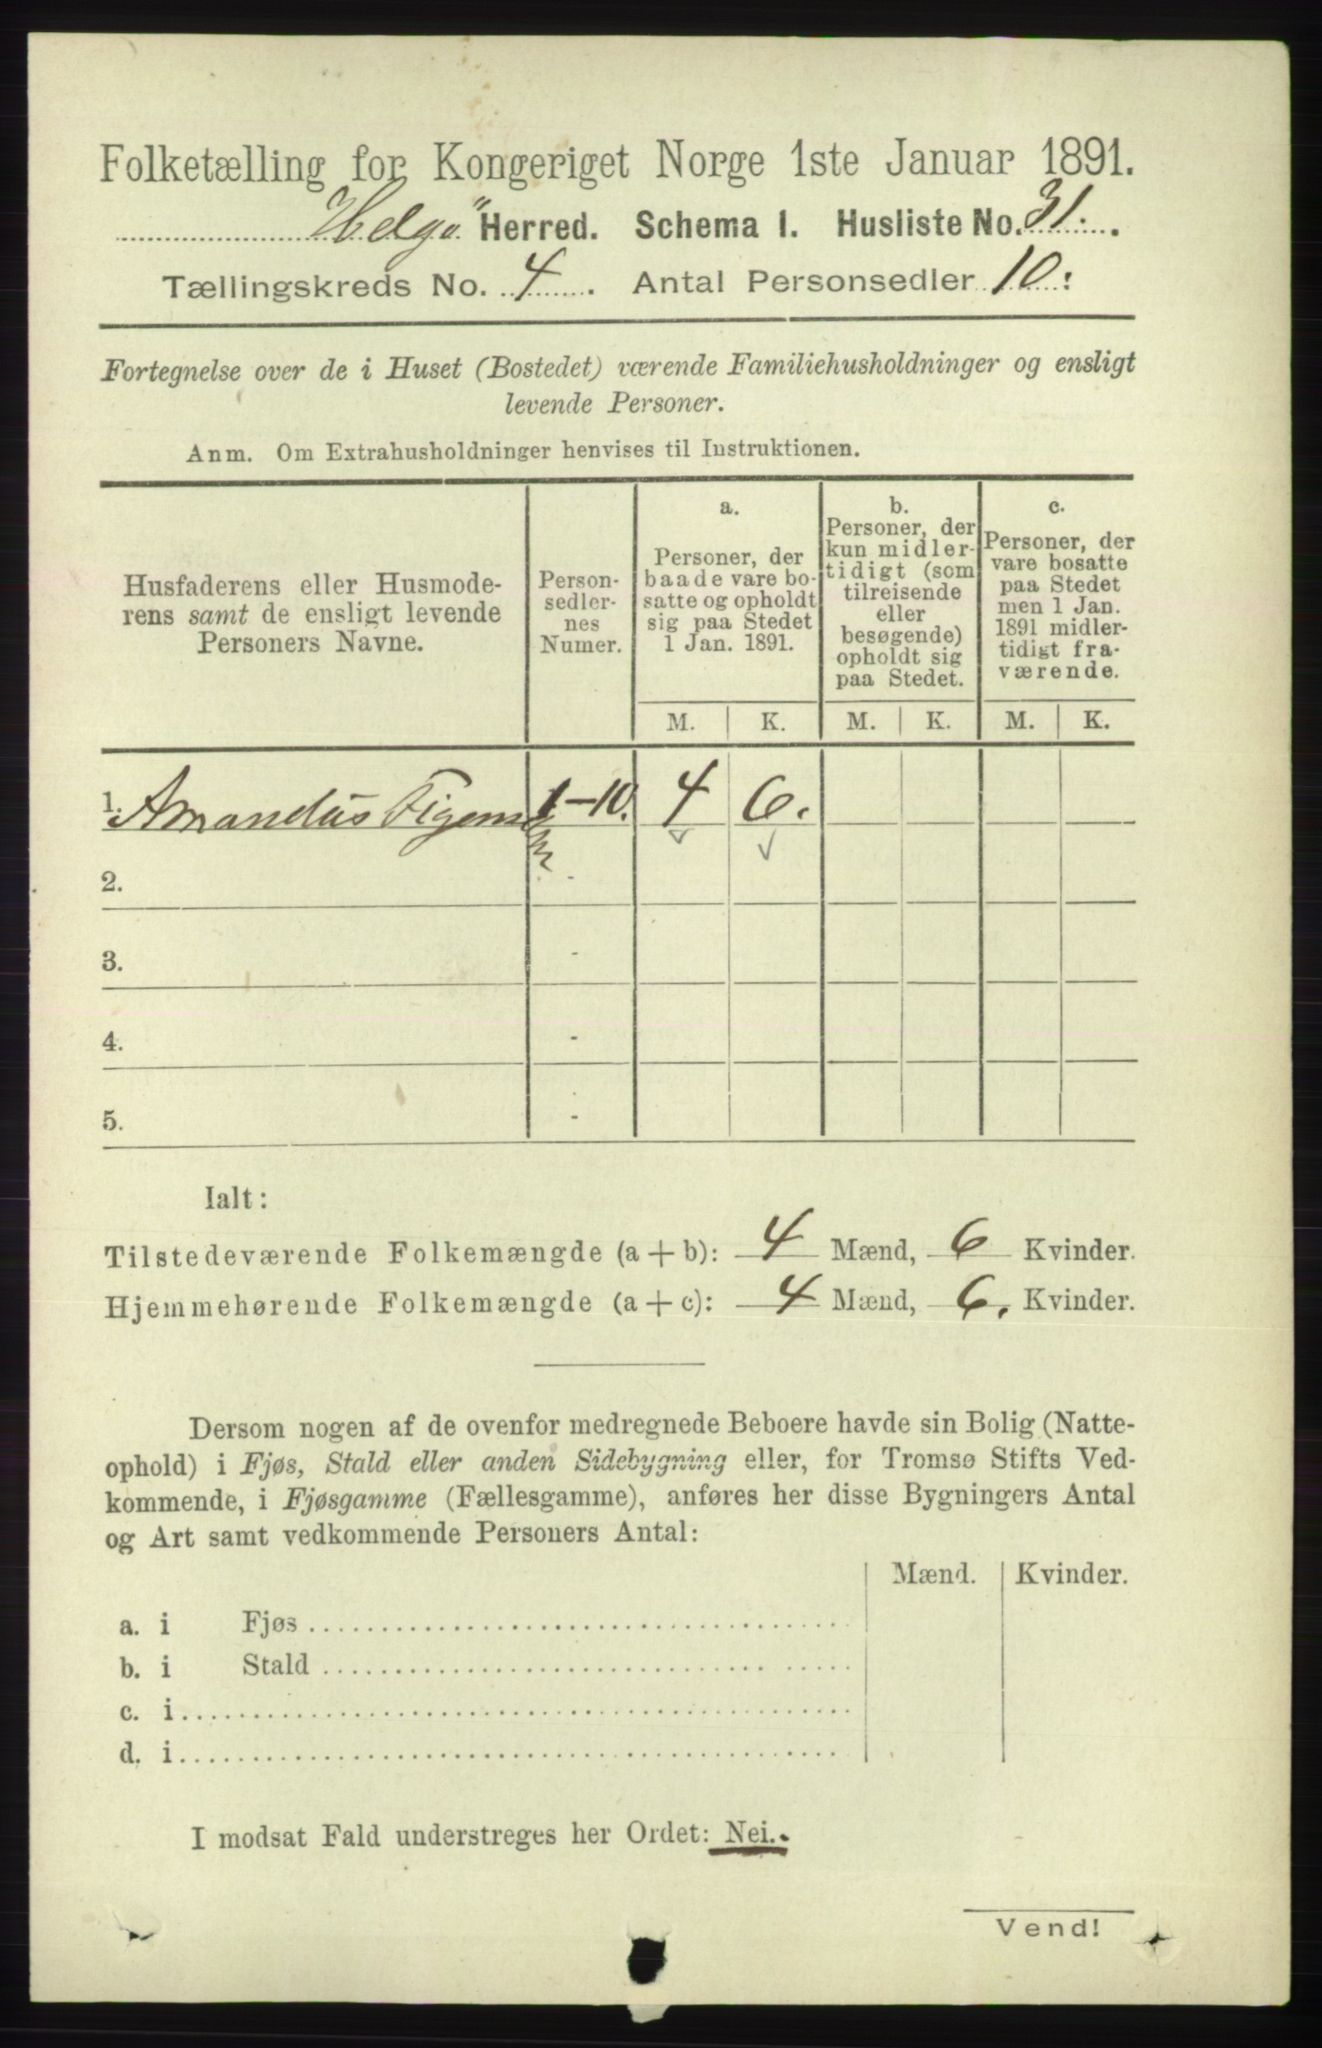 Folketælling for Kongeriget Norge 1ste Januar 1891.
Helgö Herred. Schema 1. Husliste No. 31.
Tællingskreds No. 4. Antal Personsedler 10.
Fortegnelse over de i Huset (Bostedet) værende Familiehusholdninger og ensligt
levende Personer.
Anm. Om Extrahusholdninger henvises til Instruktionen.
Husfaderens eller Husmode-
rens samt de ensligt levende
Personers Navne.
Person-
sedler-
nes
Numer.
a.
Personer, der
baade vare bo-
satte og opholdt
sig paa Stedet
1 Jan. 1891.
b.
Personer, der
kun midler-
tidigt (som
tilreisende
eller
besøgende)
opholdt sig
paa Stedet.
c.
Personer, der
vare bosatte
paa Stedet
men 1 Jan.
1891 midler-
tidigt fra-
værende.
M. K. M. K. M. K.
1. Amandus 1-10. 4 6.
2.
3. -
4. -
5. -
Ialt:
Tilstedeværende Folkemængde (a+b): 4 Mænd, 6 Kvinder.
Hjemmehørende Folkemængde (a+c): 4 Mænd, 6. Kvinder.
Dersom nogen af de ovenfor medregnede Beboere havde sin Bolig (Natte-
ophold) i Fjøs, Stald eller anden Sidebygning eller, for Tromsø Stifts Ved-
kommende, i Fjøsgamme (Fællesgamme), anføres her disse Bygningers Antal
og Art samt vedkommende Personers Antal:
Mænd. Kvinder.
a. i Fjøs
b. i Stald
c. i
d. i
I modsat Fald understreges her Ordet: Nei.
Vend!